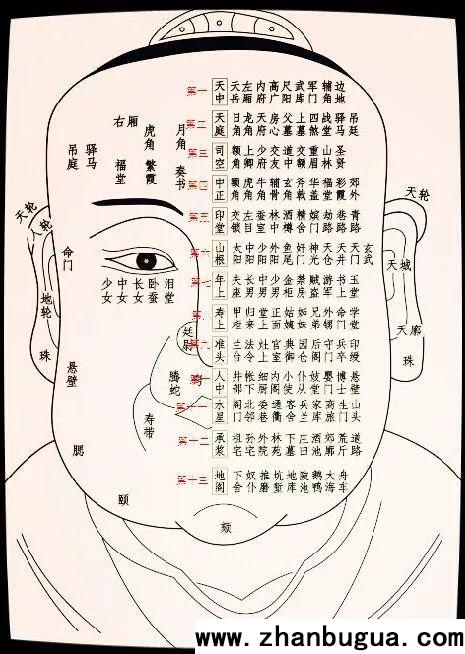 第一 天中 天岳 左厢 内府 高广 尺阳 武库 军门 辅角 边地
第二 天庭 日角 龙角 天府 房心 父墓 上墓 四煞 战堂 驿马 吊廷
第三 司空 额角 上卿 少府 交友 道中 交额 重眉 山林 圣贤
第四 中正 额角 虎角 牛角 辅骨 玄角 斧戟 华盖 福堂 彩霞 郊外
第五 印堂 交锁 左目 蚕室 林中 酒樽 精舍 嫔门 劫路 巷路 青路
第六 山根 太阳 中阳 少阳 外阳 鱼尾 奸门 神光 天仓 天井 天门 玄武
第七 年上 夫座 长男 中男 少男 金柜 禁房 贼盗 游军 书上 玉堂
第八 寿上 甲柜 归来 堂上 正面 姑姨 姊妹 兄弟 外甥 命门 学堂
第九 准头 兰台 法令 灶上 官室 典御 园仓 后阁 守门 兵卒 印绶
第十 人中 井部 帐下 细厨 内阁 小使 仆从 妓堂 婴门 博士 悬壁
第十一 水星 阁门 北邻 委巷 通衢 客舍 兵兰 家库 商旅 生门 山头
第十二 承浆 祖宅 孙宅 外院 林苑 下墓 庄田 酒池 郊廓 荒丘 道路
第十三 地阁 下舍 奴仆 推磨 坑堑 地库 陂池 鹅鸭 大海 舟车
右厢
虎角
月角
吊庭
驿马
福堂
繁霞
奏书
天轮
人轮
命门
少女
中女
长女
卧蚕
泪堂
地轮
珠
廷尉
悬壁
腾蛇
寿带
腮
颐
颏
天轮
天城
天廓
珠
www.zhanbugua.com